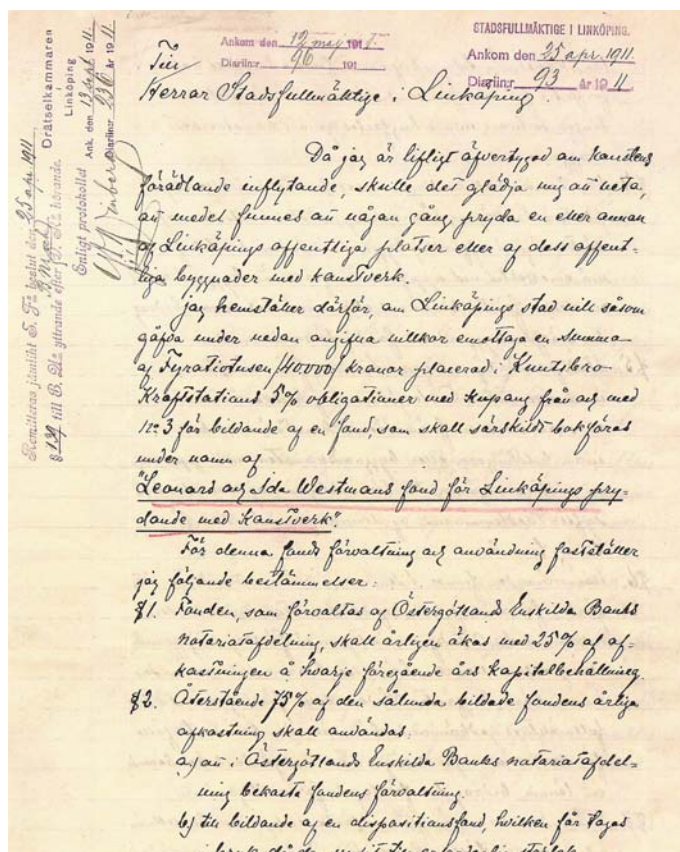 STADSFULLMÄKTIGE I LINKÖPING.
Ankom den 25 apr. 1911.
Diariin:r 93 år 1911.
Ankom den 12 maj 191
Diariin:r 96 191
Drätselkammaren
Linköping
Ank. den 13 sept 1911.
Diariin:r 236 år 1911
Remitteras jämlikt S. F:s beslut den 25 apr. 1911
§ 139 till B. Uts yttrande efter D. K:s hörande.
Enligt protokollet
Till
Herrar Stadsfullmäktige i Linköping.
Då jag är lifligt öfvertygad om konstens
förädlande inflytande, skulle det glädja mig att veta,
att medel funnes att någon gång pryda en eller annan
af Linköpings offentliga platser eller af dess offent-
liga byggnader med konstverk.
Jag hemställer därför, om Linköpings stad vill såsom
gåfva under nedan angifna villkor emottaga en summa
af Fyratiotusen /40000/ kronor placerad i Knutsbro
Kraftstations 5% obligationer med Kupong från och med
No 3 för bildande af en fond, som skall särskildt bokföras
under namn af
"Leonard och Ida Westmans fond för Linköpings pry-
dande med Konstverk".
För denna fonds förvaltning och användning fastställer
jag följande bestämmelser:
§1. Fonden, som förvaltas af Östergötlands Enskilda Banks
notariatafdelning, skall årligen ökas med 25% af af-
kastningen å hvarje föregående års kapitalbehållning.
§2. Återstående 75% af den sålunda bildade fondens årliga
afkastning skall användas:
a) att i Östergötlands Enskilda Banks notariatafdel-
ning bekosta fondens förvaltning.
b) till bildande af en dispositionsfond, hvilken får tagas